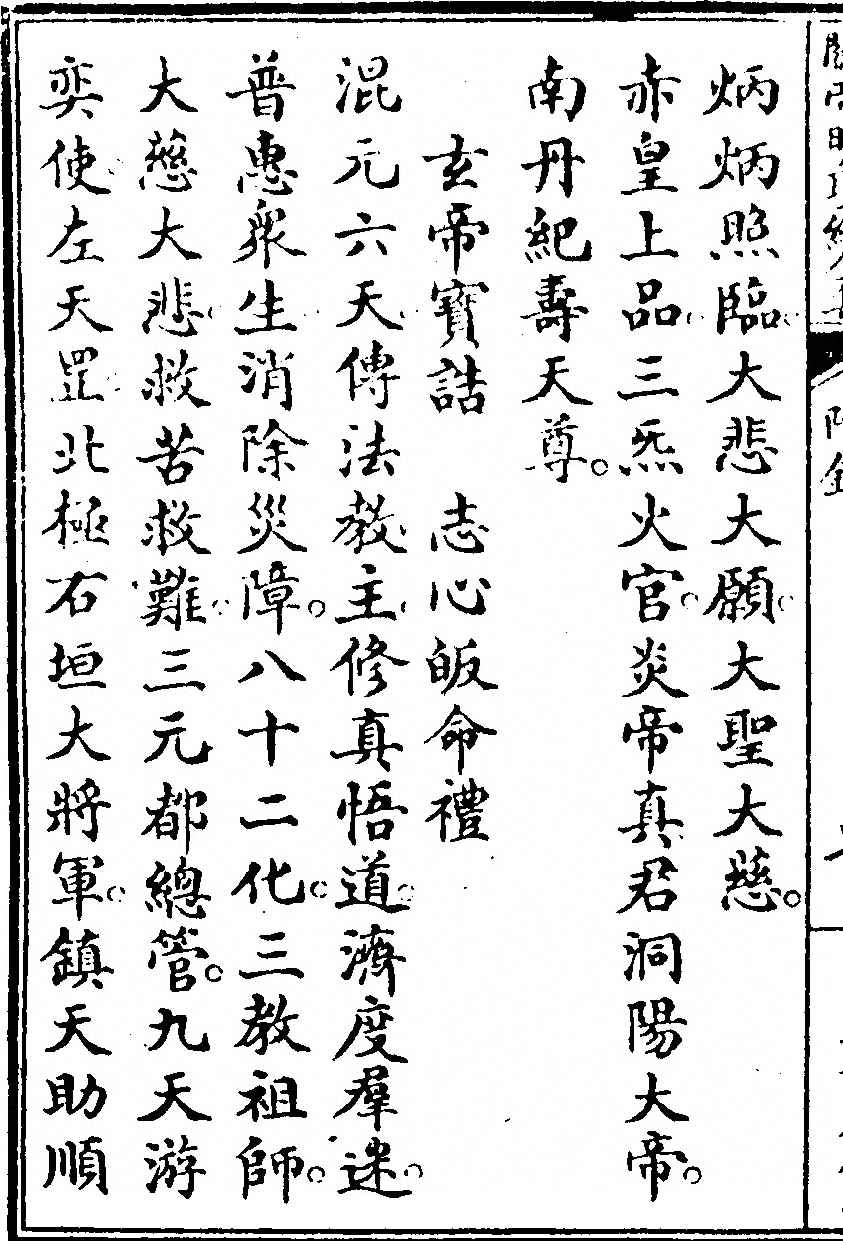 炳炳照臨大悲大願大聖大慈。
赤皇上品三炁火官炎帝真君洞陽大帝。
南丹紀壽天尊。
玄帝寶誥　志心皈命禮
混元六天傳法教主修真悟道濟度羣迷
普惠衆生消除災障。八十二化三教祖師。
大慈大悲救苦救難三元都總管。九天游
奕使左天罡北極右垣大將軍鎮天助順